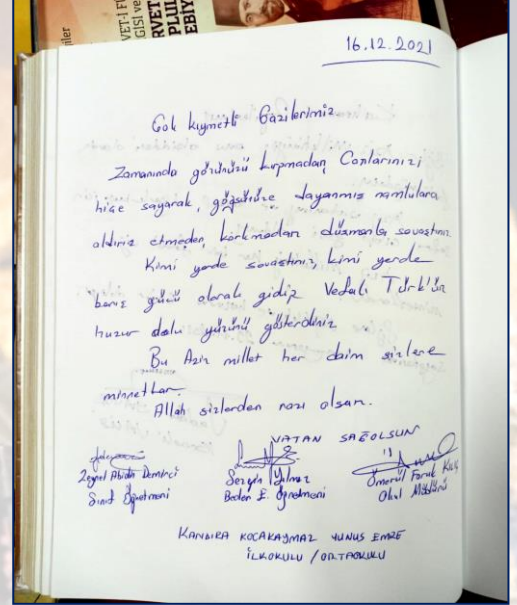 giler
VET-İ F
GİSİ ve
RVET
PLUL
EBİY
16.12.2021
Çok kıymetli Gazilerimiz
Zamanında gözünüzü kırpmadan Canlarınızı
hiçe sayarak, göğsünüze dayanmış namlulara
aldırış etmeden, korkmadan düşmanla savaştınız.
Kimi yerde savaştınız, kimi yerde
barış gücü olarak gidip Vefalı Türk'ün
huzur dolu yüzünü gösterdiniz
Bu Aziz millet her daim sizlere
minnettar.
Allah sizlerden razı olsun.
VATAN SAĞOLSUN
Zeynel Abidin Demirci
Sınıf Öğretmeni
Sezgin Yılmaz
Beden E. Öğretmeni
Ömerül Faruk Kılıç
Okul Müdürü
KANDIRA KOCAKAYMAZ YUNUS EMRE
İLKOKULU / ORTAOKULU